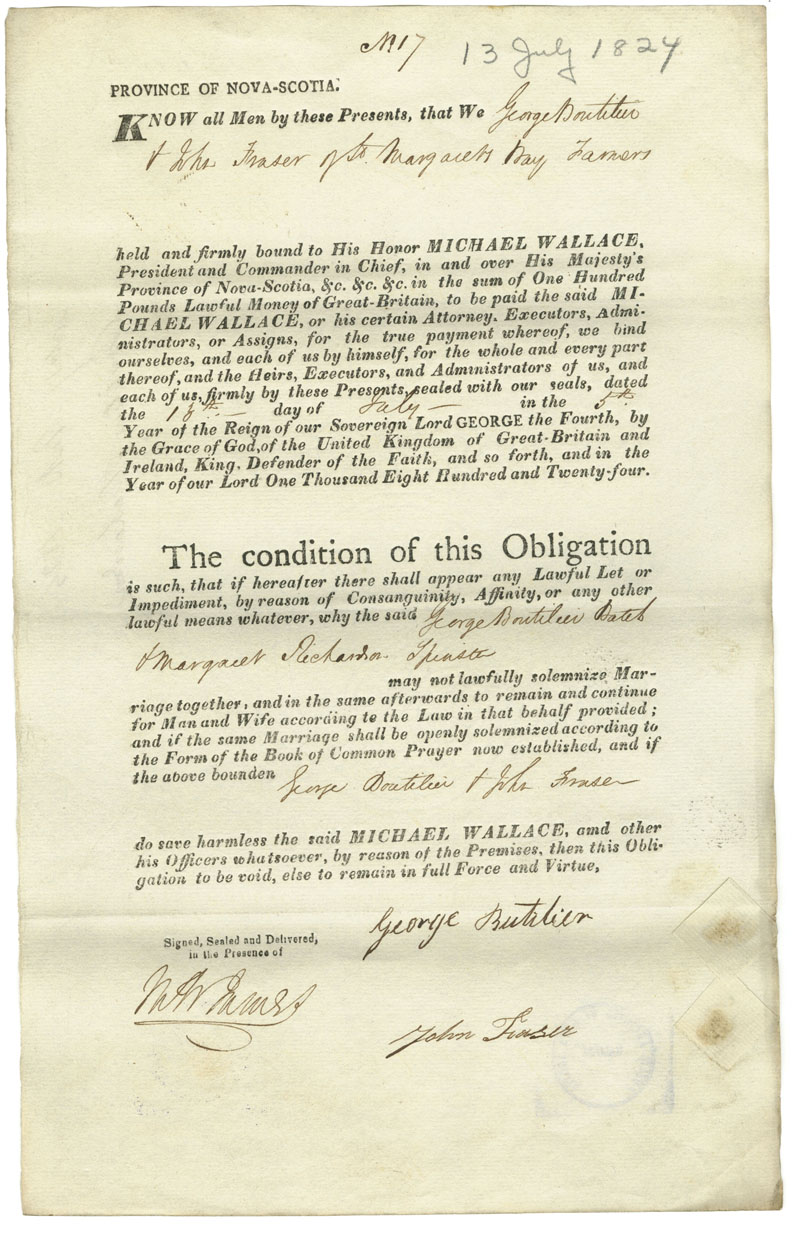 No 17 13 July 1824
PROVINCE OF NOVA-SCOTIA.
KNOW all Men by these Presents, that We George Boutilier
& John Fraser of St. Margarets Bay Farmers
held and firmly bound to His Honor MICHAEL WALLACE,
President and Commander in Chief, in and over His Majesty's
Province of Nova-Scotia, &c. &c. &c. in the sum of One Hundred
Pounds Lawful Money of Great-Britain, to be paid the said MI-
CHAEL WALLACE, or his certain Attorney, Executors, Admi-
nistrators, or Assigns, for the true payment whereof, we bind
ourselves, and each of us by himself, for the whole and every part
thereof, and the Heirs, Executors, and Administrators of us, and
each of us, firmly by these Presents, sealed with our seals, dated
the day of July in the 5th
Year of the Reign of our Sovereign Lord GEORGE the Fourth, by
the Grace of God, of the United Kingdom of Great-Britain and
Ireland, King, Defender of the Faith, and so forth, and in the
Year of our Lord One Thousand Eight Hundred and Twenty-four.
The condition of this Obligation
is such, that if hereafter there shall appear any Lawful Let or
Impediment, by reason of Consanguinity, Affinity, or any other
lawful means whatever, why the said George Boutilier Batch
& Margaret Richardson Spinster
may not lawfully solemnize Mar-
riage together, and in the same afterwards to remain and continue
for Man and Wife according te the Law in that behalf provided;
and if the same Marriage shall be openly solemnized according to
the Form of the Book of Common Prayer now established, and if
the above bounden George Boutilier & John Fraser
do save harmless the said MICHAEL WALLACE, amd other
his Officers whatsoever, by reason of the Premises, then this Obli-
gation to be void, else to remain in full Force and Virtue,
George Butilier
Signed, Sealed and Delivered,
in the Presence of
John Fraser